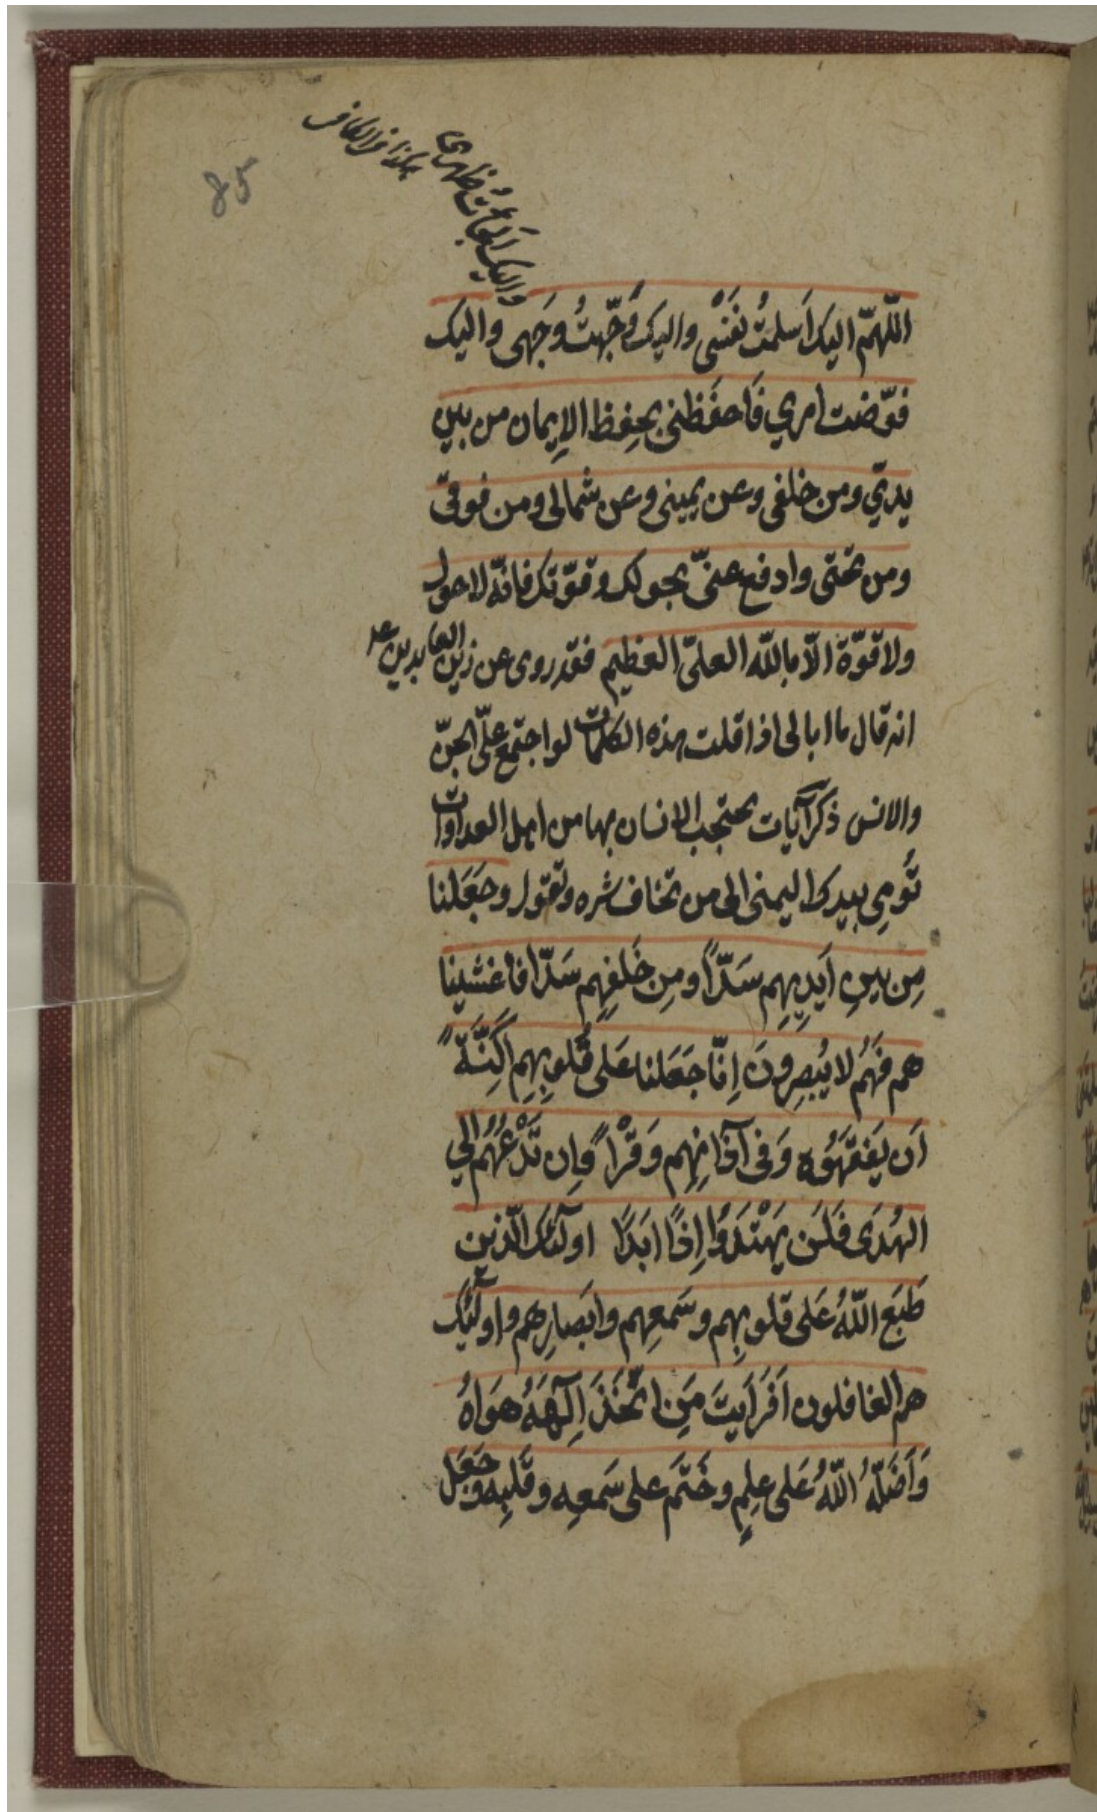 هكذا فى الكافى
واليك الجأتُ ظهرى
85
اللّهمّ اليك اَسلمتُ نَفَسْى واليك وَجّهتُ وَجَهى واليك
فوّضت امري فَاحفَظنى بحِفِظ الاِيمان من بين
يديّ ومن خلفى وعن يمينى وعن شمالى ومن فوقى
ومن تحتى وادفع عنىّ بحولك وقوّتك فانّه لا حول
ولا قوّة الّا باللّه العلىّ العظيم فقد روى عن زين العابدين ع
انه قال ما ابالى اذا قلت هذه الكلمات لو اجتمع علىّ الجنّ
والانس ذكر آيات يحتجب الانسان بها من اهل العداوات
تُومى بيدك اليمنى الى من تخاف شره وتقول وجَعَلنا
مِن بينِ اَيدِيهِم سَدّاً ومِن خَلفِهِم سَدّا فاَغشَينا
هم فَهُم لا يُبصِرونَ اِنّا جَعَلنا عَلى قُلوبِهِم اَكِنَّةً
اَن يَفقَهُوه وَفى آذانِهِم وَقْراً وَاِن تَدْعُهُم الى
الهُدَى فَلَن يَهْتَدَوُا اِذًا ابَدًا اولئك الّذين
طَبَع اللّهُ عَلى قلوبِهم وسَمعِهم وابَصارِهم واولئك
هم الغافلون اَفَرَاَيتَ مَنِ اتّخَذَ اِلٓهَهُ هَوَاهُ
وَاَضَلّهُ اللّهُ عَلى عِلمٍ وخَتَم على سَمعِه وقَلبِه وجَعَل